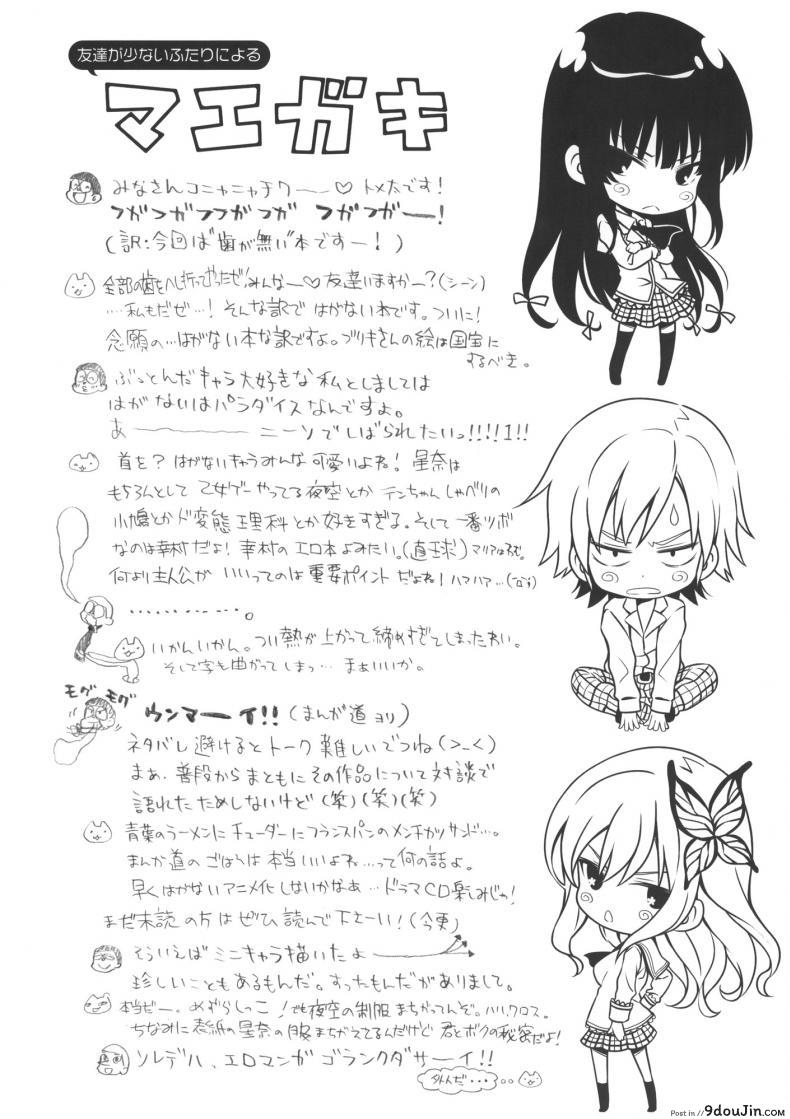 友達が少ないふたりによる
マエガキ
みなさんコニャニャチワー──♡ トメ太です！
フガフガフフガフガ フガフガー！
（訳：今回は"歯が無い"本ですー！）
全部の歯をへし折ってやったぜ！みんなー♡友達いますかー？（シーン）
‥‥私もだぜ…！そんな訳で はがない本です。ついに！
念願の…はがない本な訳ですよ。ブリキさんの絵は国宝に
するべき。
ぶっとんだキャラ大好きな私としましては
はがないはパラダイスなんですよ。
あ────── ニーソでしばられたいっ!!!!1!!
首を？はがないキャラみんな可愛いよね！星奈は
もちろんとして 乙女ゲーやってる夜空とか テンちゃんしゃべりの
小鳩とかド変態理科とか好きすぎる。そして一番ツボ
なのは幸村だよ！幸村のエロ本よみたい。（直球）
何より主人公がいいってのは重要ポイントだよね！ハァハァ…
‥‥‥‥‥‥。
いかんいかん。つい熱が上がって締めすぎてしまったわい。
そして字も曲がってしまっ… まぁいいか。
モグ モグ
ウンマーイ!!（まんが道ヨリ）
ネタバレ避けるとトーク難しいでつね（＞_＜）
まぁ、普段からまともにその作品について対談で
語れたためしないけど（笑）（笑）（笑）
青葉のラーメンにチューダーにフランスパンのメンチカツサンド…。
まんが道のごはんは本当いいよね…って何の話よ。
早くはがないアニメ化しないかなぁ…ドラマCD楽しみじゃ！
まだ未読の方はぜひ読んで下さーい！（今更）
そういえばミニキャラ描いたよ
珍しいこともあるもんだ。すったもんだがありまして。
本当ビー。めずらしっこ！でも夜空の制服まちがってんぞ。ハリクロス。
ちなみに表紙の星奈の服まちがえてるんだけど 君とボクの秘密だよ！
ソレデハ、エロマンガ ゴランクダサーイ!!
外んだ・・・
Post in // 9douJin.com